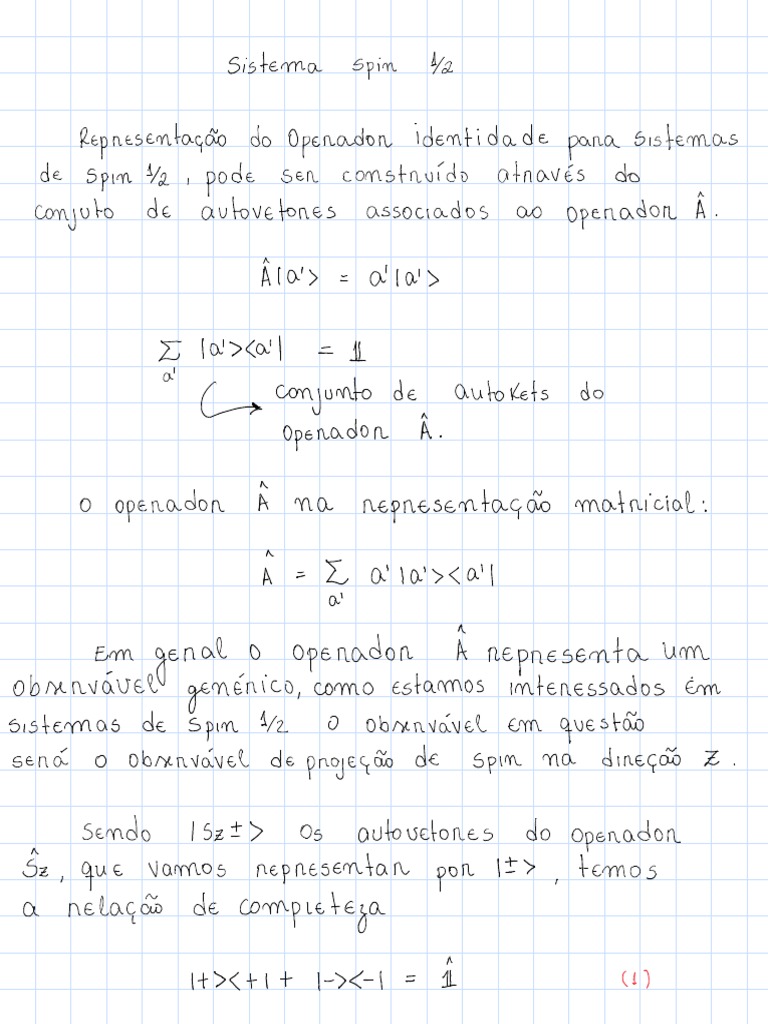 Sistema spin 1/2
Representação do Operador identidade para sistemas
de spin 1/2, pode ser construído através do
conjuto de autovetores associados ao operador Â.
Â|a'> = a'|a'>
∑ |a'><a'| = 𝟙
a'
conjunto de autokets do
operador Â.
O operador Â na representação matricial:
Â = ∑ a'|a'><a'|
a'
Em geral o operador Â representa um
observável genérico, como estamos interessados em
sistemas de spin 1/2 o observável em questão
será o observável de projeção de spin na direção z.
Sendo |Sz±> os autovetores do operador
Ŝz, que vamos representar por |±>, temos
a relação de completeza
|+><+| + |-><-| = 𝟙̂ (1)